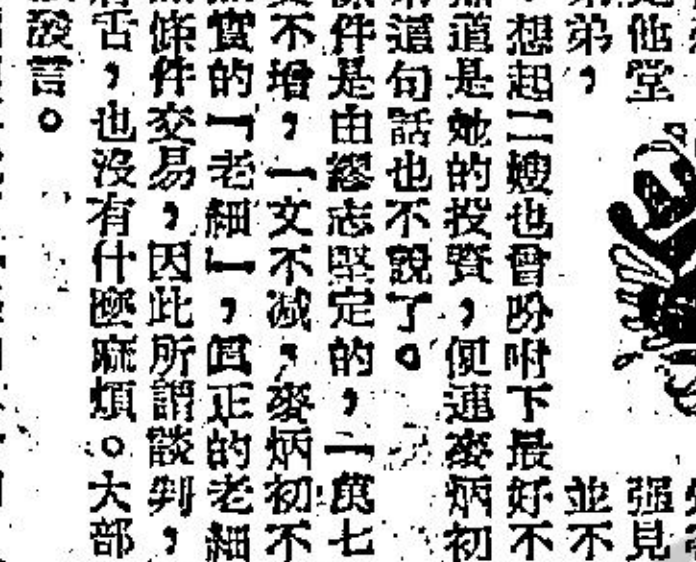 他堂
强見
弟，
並不
想起二嫂也曾吩咐下最好不
道是她的投資，便連麥炳初
這句話也不說了。
件是由繆志堅定的，二萬七
不增，一文不減，麥炳初不
實的「老細」，眞正的老細
條件交易，因此所謂談判，
舌，也沒有什麼麻煩。大部
言。